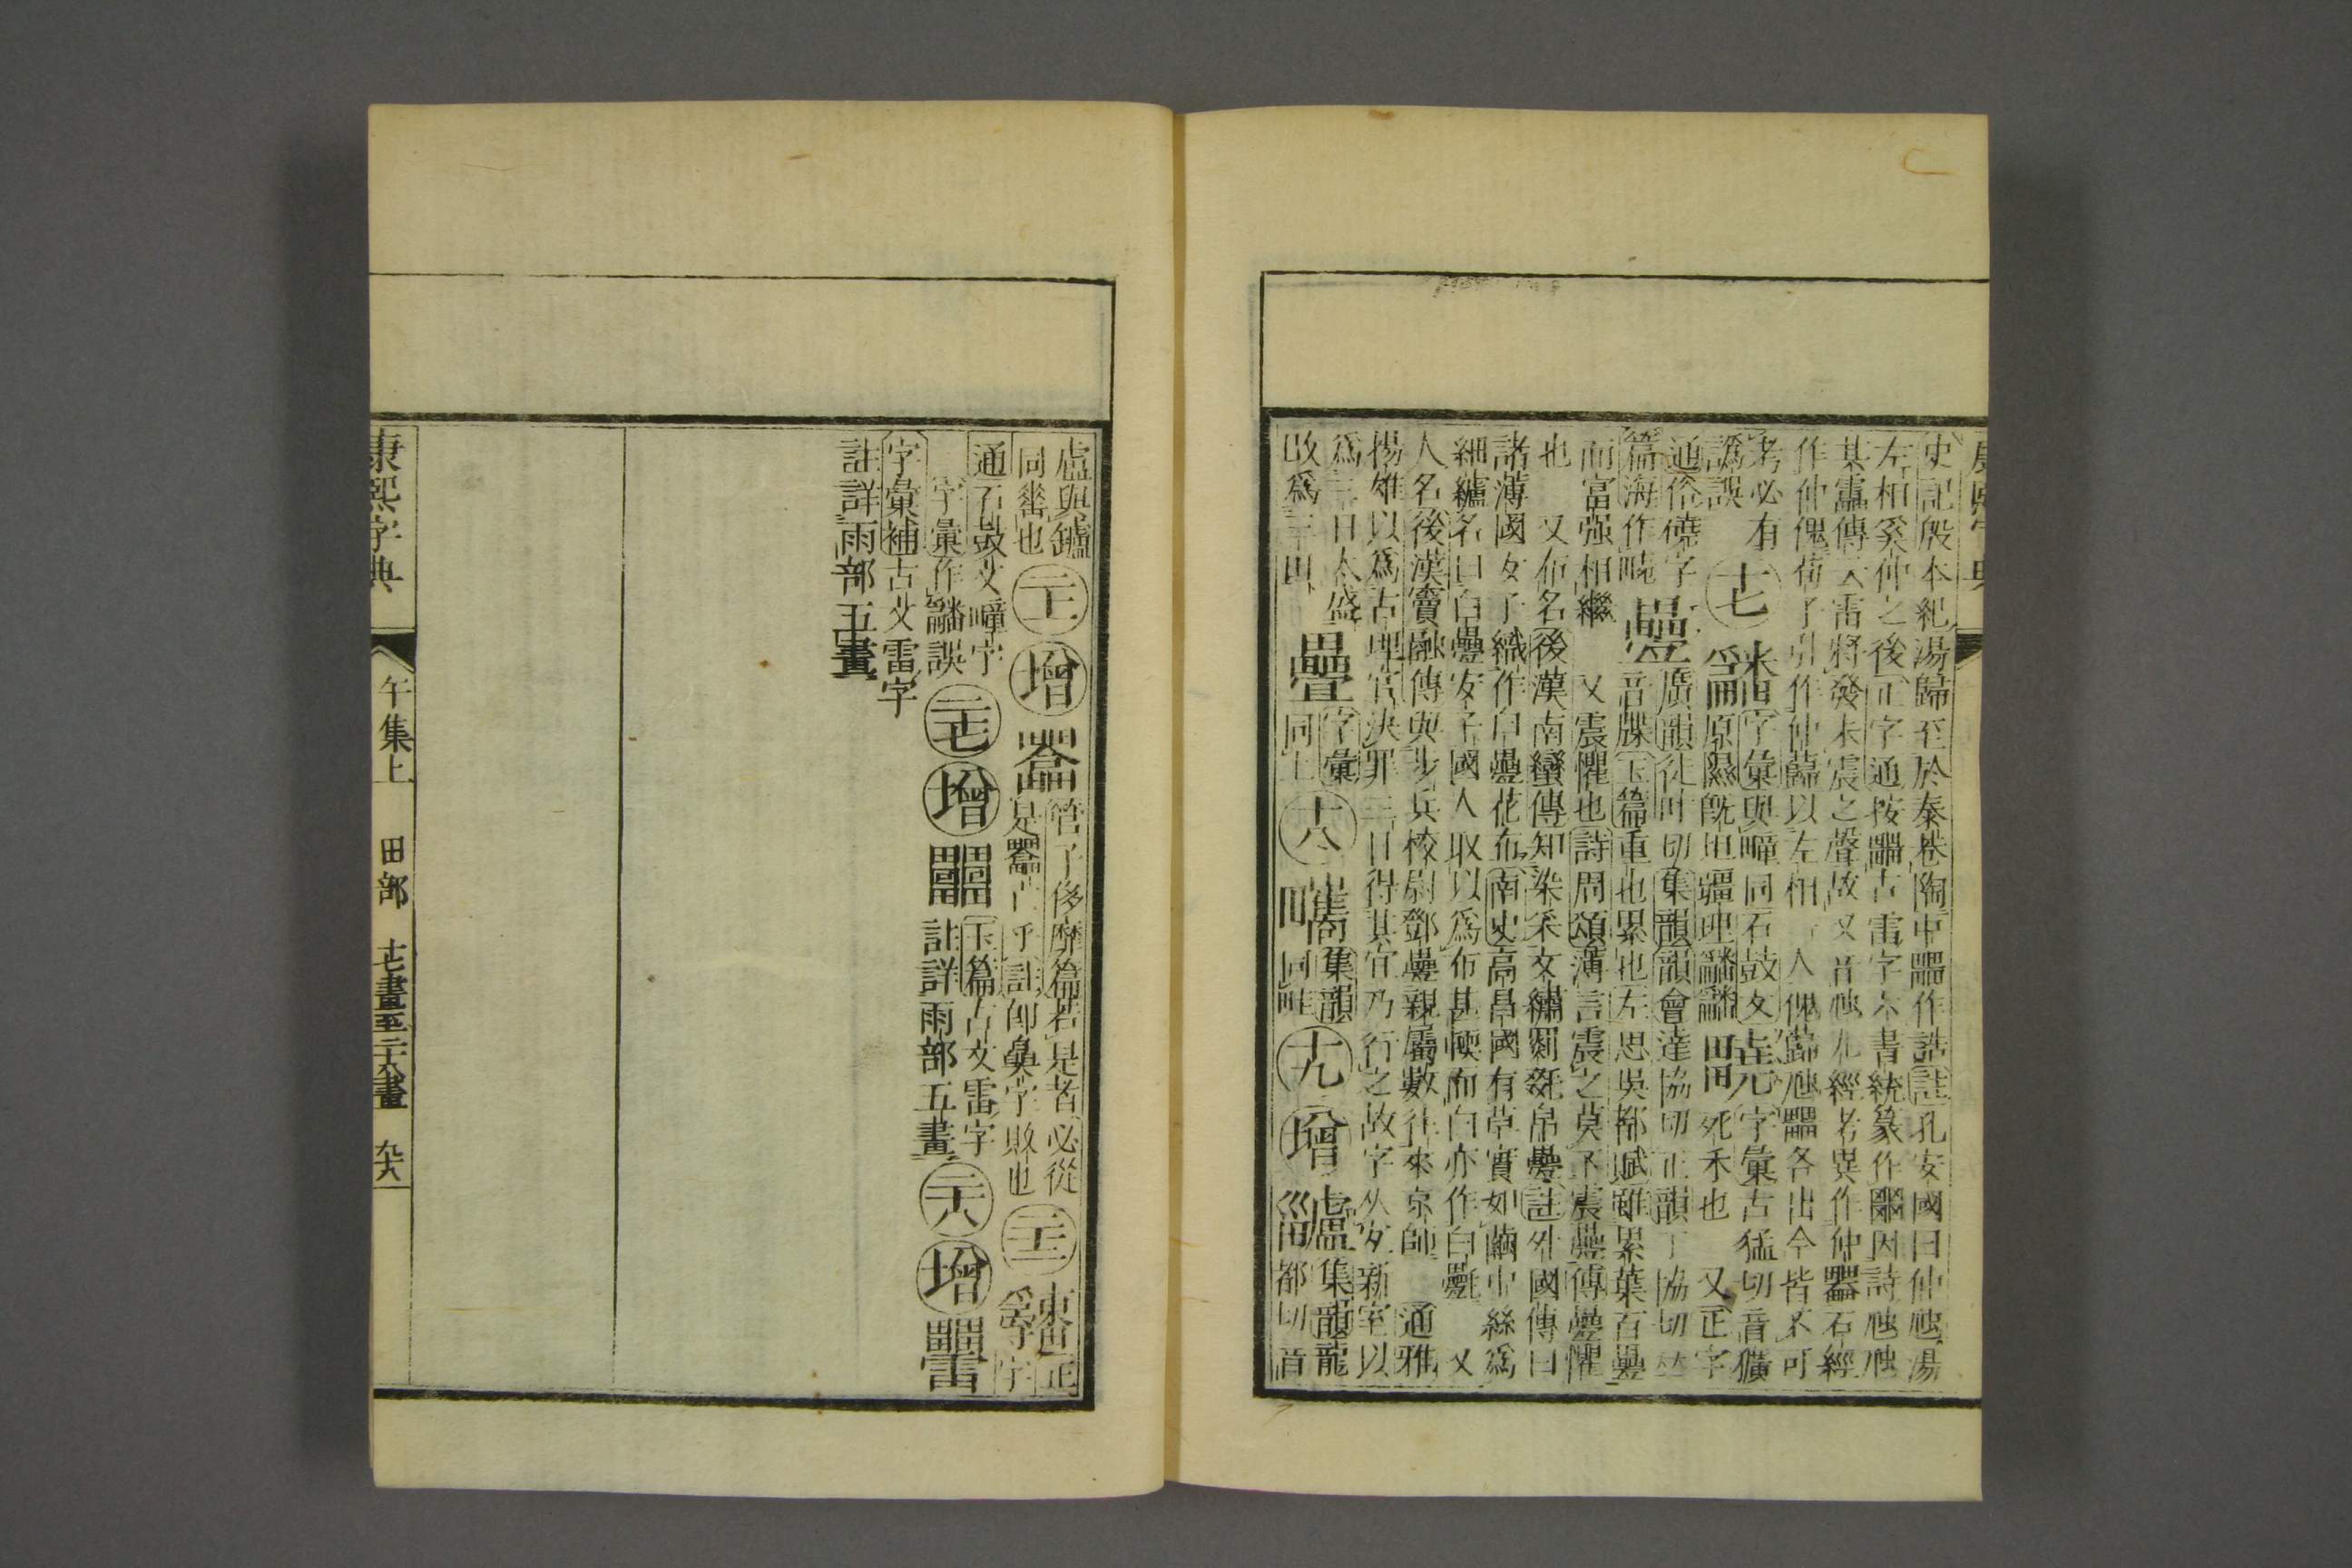 史記殷本紀湯歸至於泰卷陶中𤳳作誥註孔安國曰仲虺湯
左相奚仲之後正字通按䨻古雷字六書統篆作畾因詩虺虺
其靁傳云雷將發未震之聲故又音虺九經考異作仲𤳳石經
作仲傀荀子引作仲蘬以左相一人傀蘬虺𤳳各出今皆不可
考必有
譌誤
十七
字彙與疃同石鼓文
原隰旣坦疆理
字彙古猛切音獷
死禾也 又正字
通俗磽字
篇海作
疊
廣韻徒叶切集韻韻會達協切正韻丁協切𠀤
音牒玉篇重也累也左思吳都賦雖累葉百疊
而富强相繼 又震懼也詩周頌薄言震之莫不震疊傳疊懼
也 又布名後漢南蠻傳知染采文繡罽毲帛疊註外國傳曰
諸薄國女子織作白疊花布南史高昌國有草實如繭中絲爲
細纑名曰白疊安子國人取以爲布甚輭而白亦作白㲲 又
人名後漢竇融傳與步兵校尉鄧疊親屬數往來京師 通雅
揚雄以爲古理官決罪三日得其宜乃行之故字从夊新室以
爲三日太盛
改爲三田
疊
字彙
同上
十八
集韻
同畦
十九
增
集韻龍
都切音
盧與鑪
同畚也
二十一
增
管子侈靡篇若是者必從
是𤳳亡乎註卽𤳳字敗也
二十二
正
字
通石鼓文疃字
字彙作𤳳誤
二十七
增
玉篇古文雷字
註詳雨部五畫
二十八
增
字彙補古文雷字
註詳雨部五畫
康熙字典
午集上 田部 十七畫至二十八畫 六十八